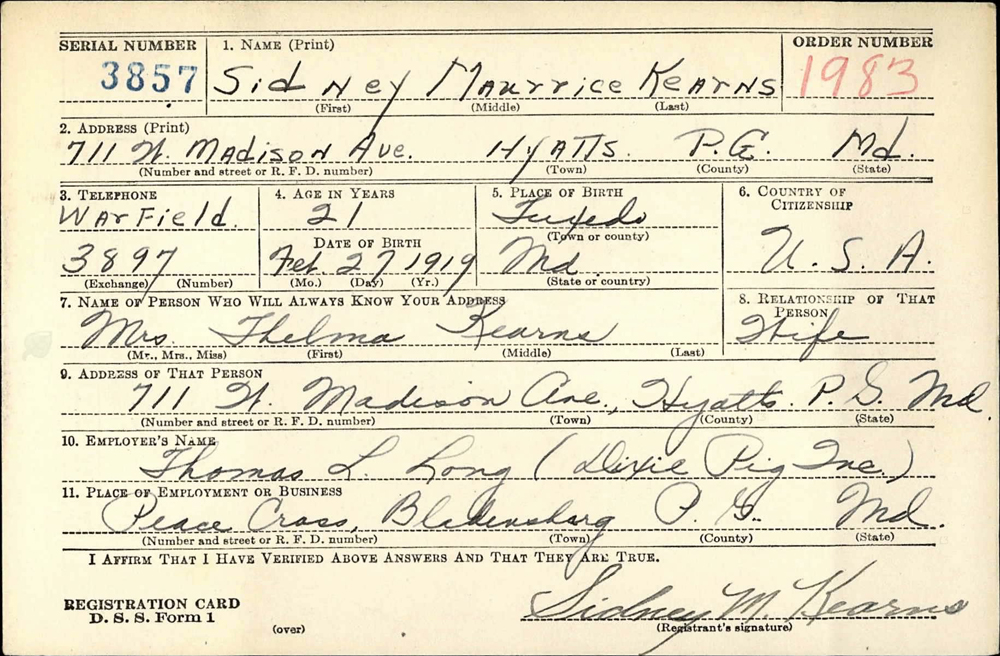 SERIAL NUMBER 1. NAME (Print) ORDER NUMBER
3857 Sidney Maurrice Kearns 1983
(First) (Middle) (Last)
2. ADDRESS (Print)
711 N. Madison Ave. Hyatts. P.G. Md.
(Number and street or R. F. D. number) (Town) (County) (State)
3. TELEPHONE 4. AGE IN YEARS 5. PLACE OF BIRTH 6. COUNTRY OF
CITIZENSHIP
Warfield. 21 Tuxedo
DATE OF BIRTH (Town or county)
3897 Feb. 27 1919 Md. U. S. A.
(Exchange) (Number) (Mo.) (Day) (Yr.) (State or country)
7. NAME OF PERSON WHO WILL ALWAYS KNOW YOUR ADDRESS 8. RELATIONSHIP OF THAT
PERSON
Mrs. Thelma Kearns Wife
(Mr., Mrs., Miss) (First) (Middle) (Last)
9. ADDRESS OF THAT PERSON
711 N. Madison Ave., Hyatts. P. G. Md.
(Number and street or R. F. D. number) (Town) (County) (State)
10. EMPLOYER'S NAME
Thomas L. Long (Dixie Pig Inc.)
11. PLACE OF EMPLOYMENT OR BUSINESS
Peace Cross, Bladensburg P. G. Md.
(Number and street or R. F. D. number) (Town) (County) (State)
I AFFIRM THAT I HAVE VERIFIED ABOVE ANSWERS AND THAT THEY ARE TRUE.
REGISTRATION CARD Sidney M. Kearns
D. S. S. Form 1 (over) (Registrant's signature)